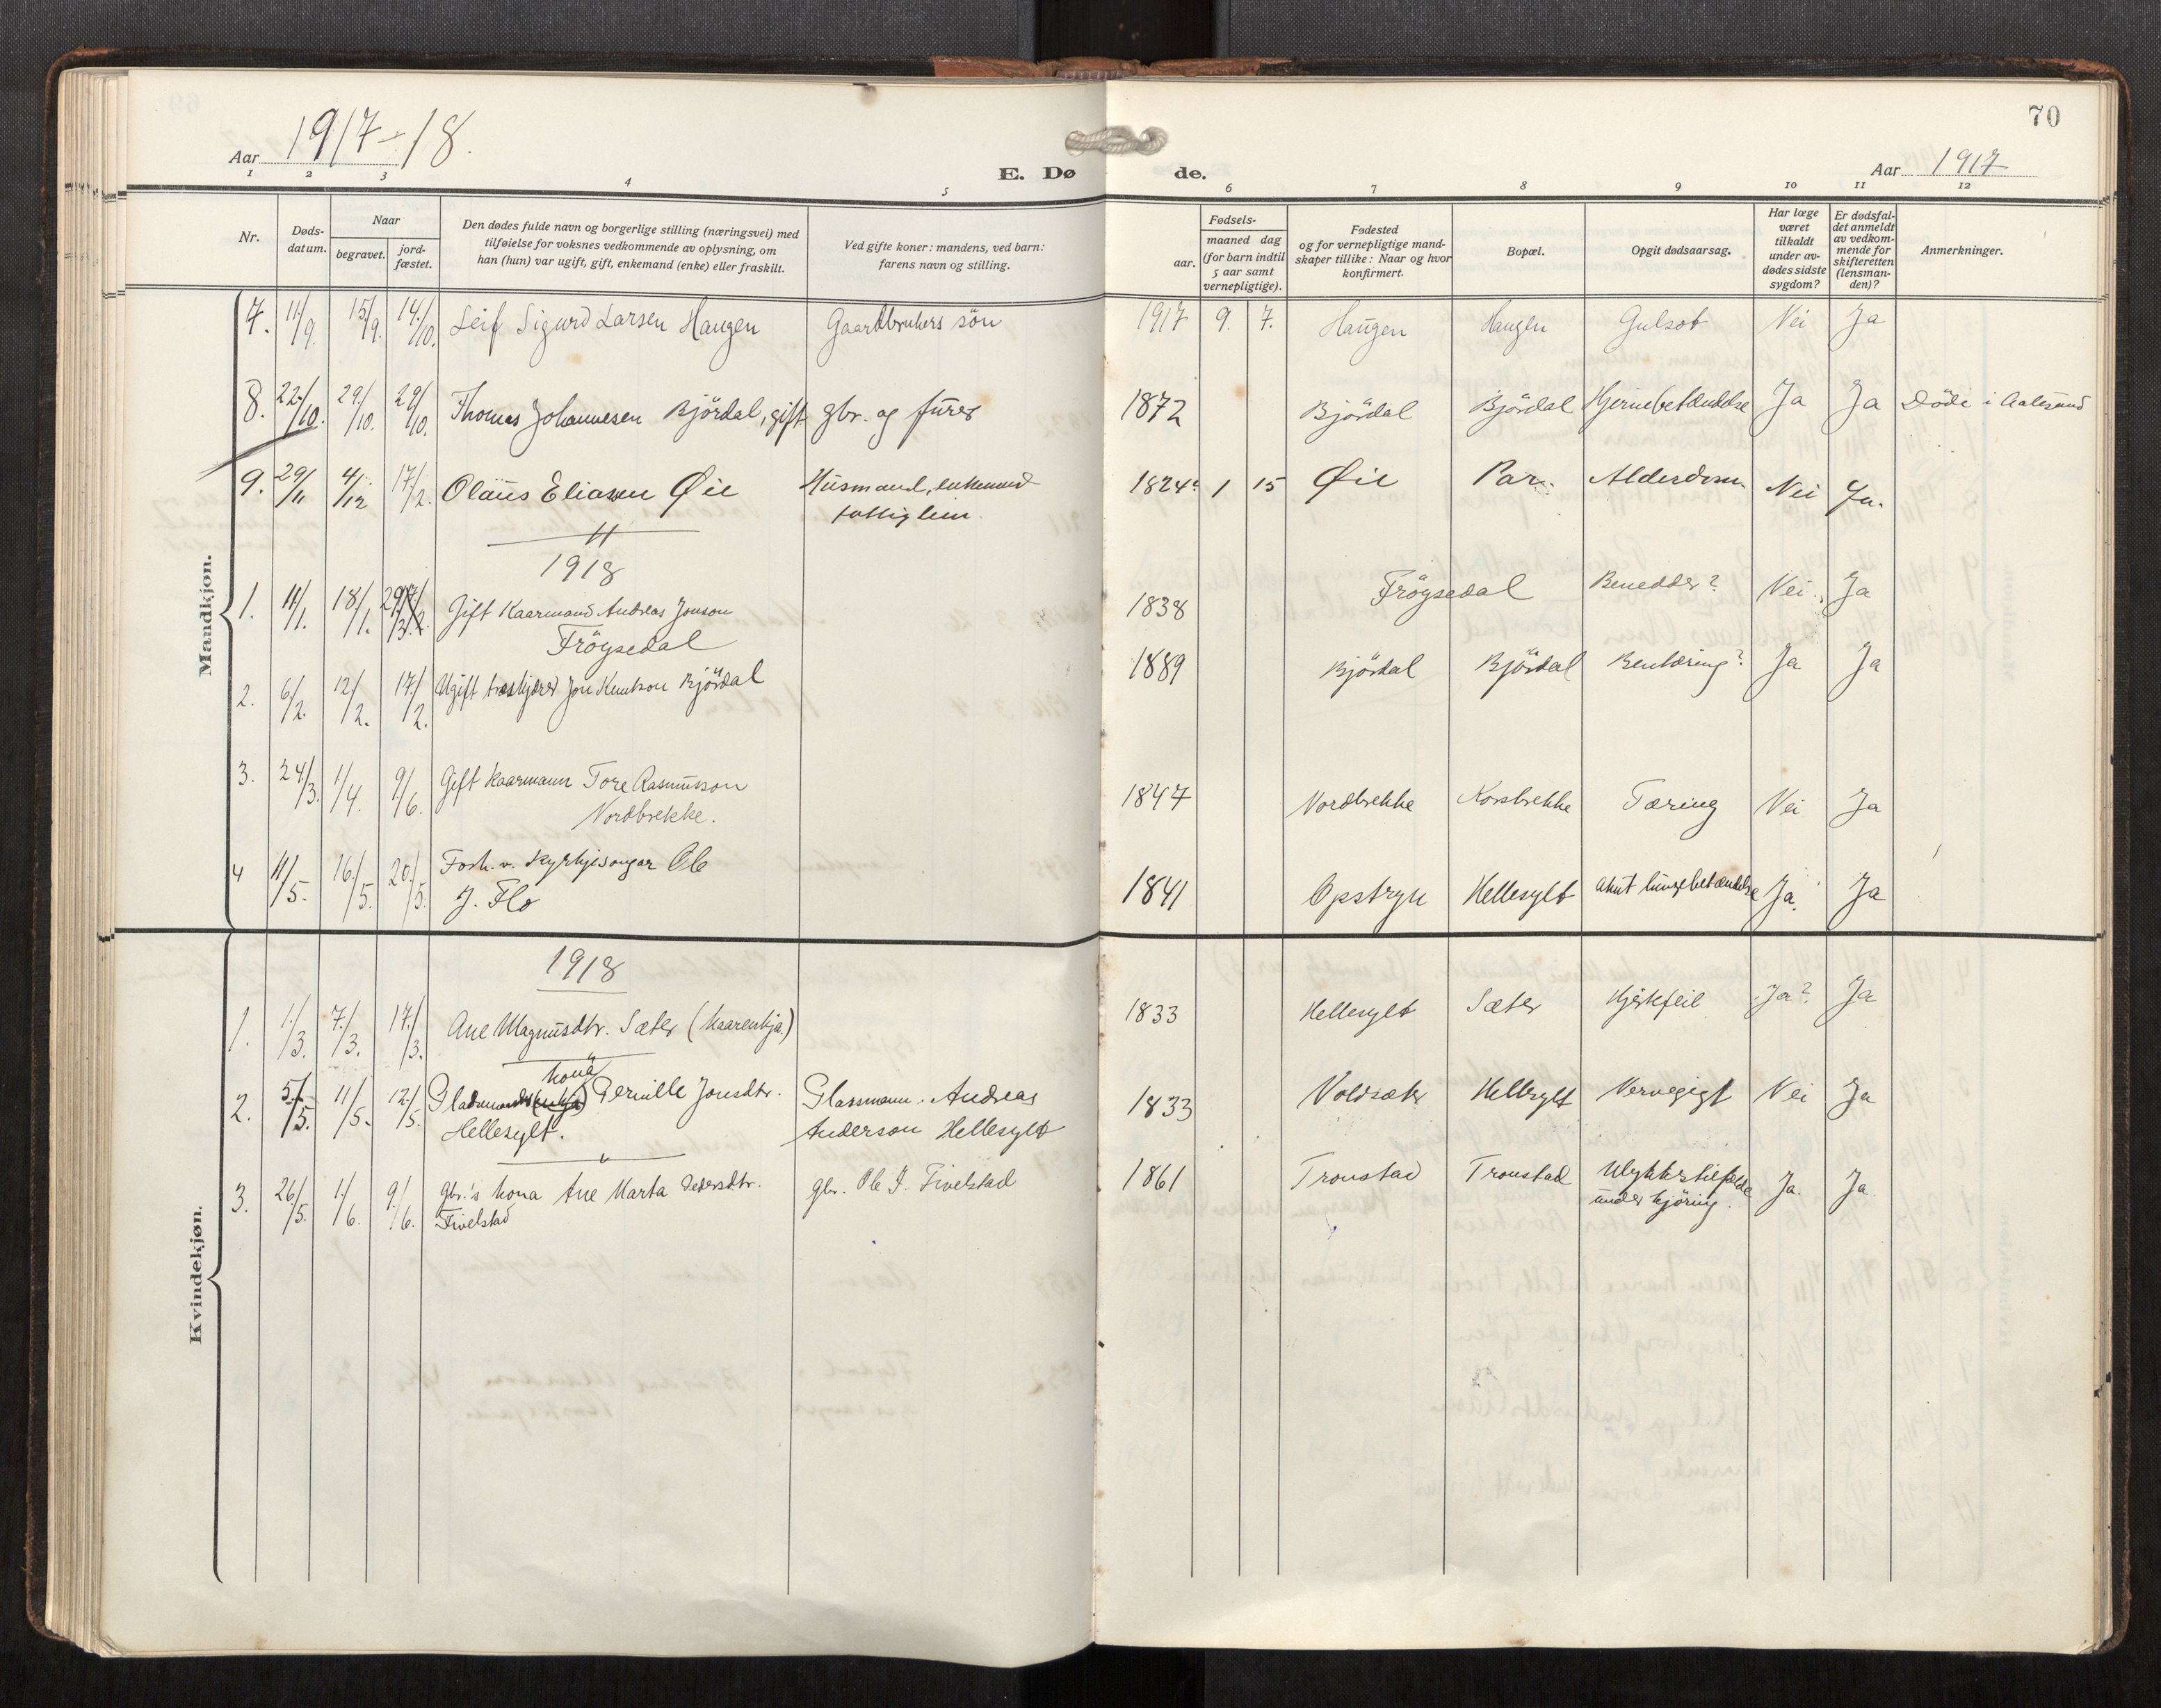 70
Aar 1917-18.
E. Døde.
Aar 1917
1 2 3 4 5 6 7 8 9 10 11 12
Nr.
Dødsdatum.
Naar
begravet.
jordfæstet.
Den dødes fulde navn og borgerlige stilling (næringsvei) med
tilføielse for voksnes vedkommende av oplysning, om
han (hun) var ugift, gift, enkemand (enke) eller fraskilt.
Ved gifte koner: mandens, ved barn:
farens navn og stilling.
aar.
Fødsels-
maaned dag
(for barn indtil
5 aar samt
vernepligtige).
Fødested
og for vernepligtige mand-
skaper tillike: Naar og hvor
konfirmert.
Bopæl.
Opgit dødsaarsag.
Har læge
været
tilkaldt
under av-
dødes sidste
sygdom?
Er dødsfal-
det anmeldt
av vedkom-
mende for
skifteretten
(lensman-
den)?
Anmerkninger.
Mandkjøn.
7. 11/9. 15/9. 14./10. Leif Sigurd Larsen Haugen Gaardbrukers sön 1917 9. 7. Haugen Haugen Gulsot Nei Ja
8. 22./10. 29./10. 29/10. Thomas Johannesen Björdal, gift gbr. og furer 1872 Björdal Björdal Hjernebetændelse Ja Ja Döde i Aalesund
9. 29/11 4/12 17/2. Olaus Eliasen Øie Husmand, enkemand 1824 1 15 Øie Alderdom Nei Ja.
1918
1. 11/1. 18/1. Gift Kaarmand Andreas Jonson 1838 Fröysedal Nei. Ja
Fröysedal
2. 6/2. 12/2. 17./2. Ugift Jon Knutson Björdal 1889 Björdal Björdal Ja Ja
3. 24/3. 1/4. 9/6. Gift Kaarmann Tore Rasmusson 1847 Nordbrekke Korsbrekke Tæring Nei Ja
Nordbrekke.
4 11/5. 16./5. 20./5. Forh. v. Kyrkjesongar Ole 1841 Opstryn Hellesylt akut lungebetændelse Ja. Ja
J. Flo
Kvindekjøn.
1918
1. 1./3. 7./3. 17./3. Ane Magnusdtr. Sæter (Kaarenkja.) 1833 Hellesylt Sæter Hjertefeil Ja? Ja
kona
2. 5/5. 11/5. 12./5. Pernille Jonsdtr. Glassmann. Andreas 1833 Voldsæter Hellesylt Nervegigt Nei Ja
Hellesylt. Anderson Hellesylt
3. 26/5. 1/6. 9./6. gbr.'s kona Ane Marta Pedersdtr. gbr. Ole J. Fivelstad 1861 Tronstad Tronstad Ulykkestilfelde Ja. Ja
Fivelstad under kjöring.